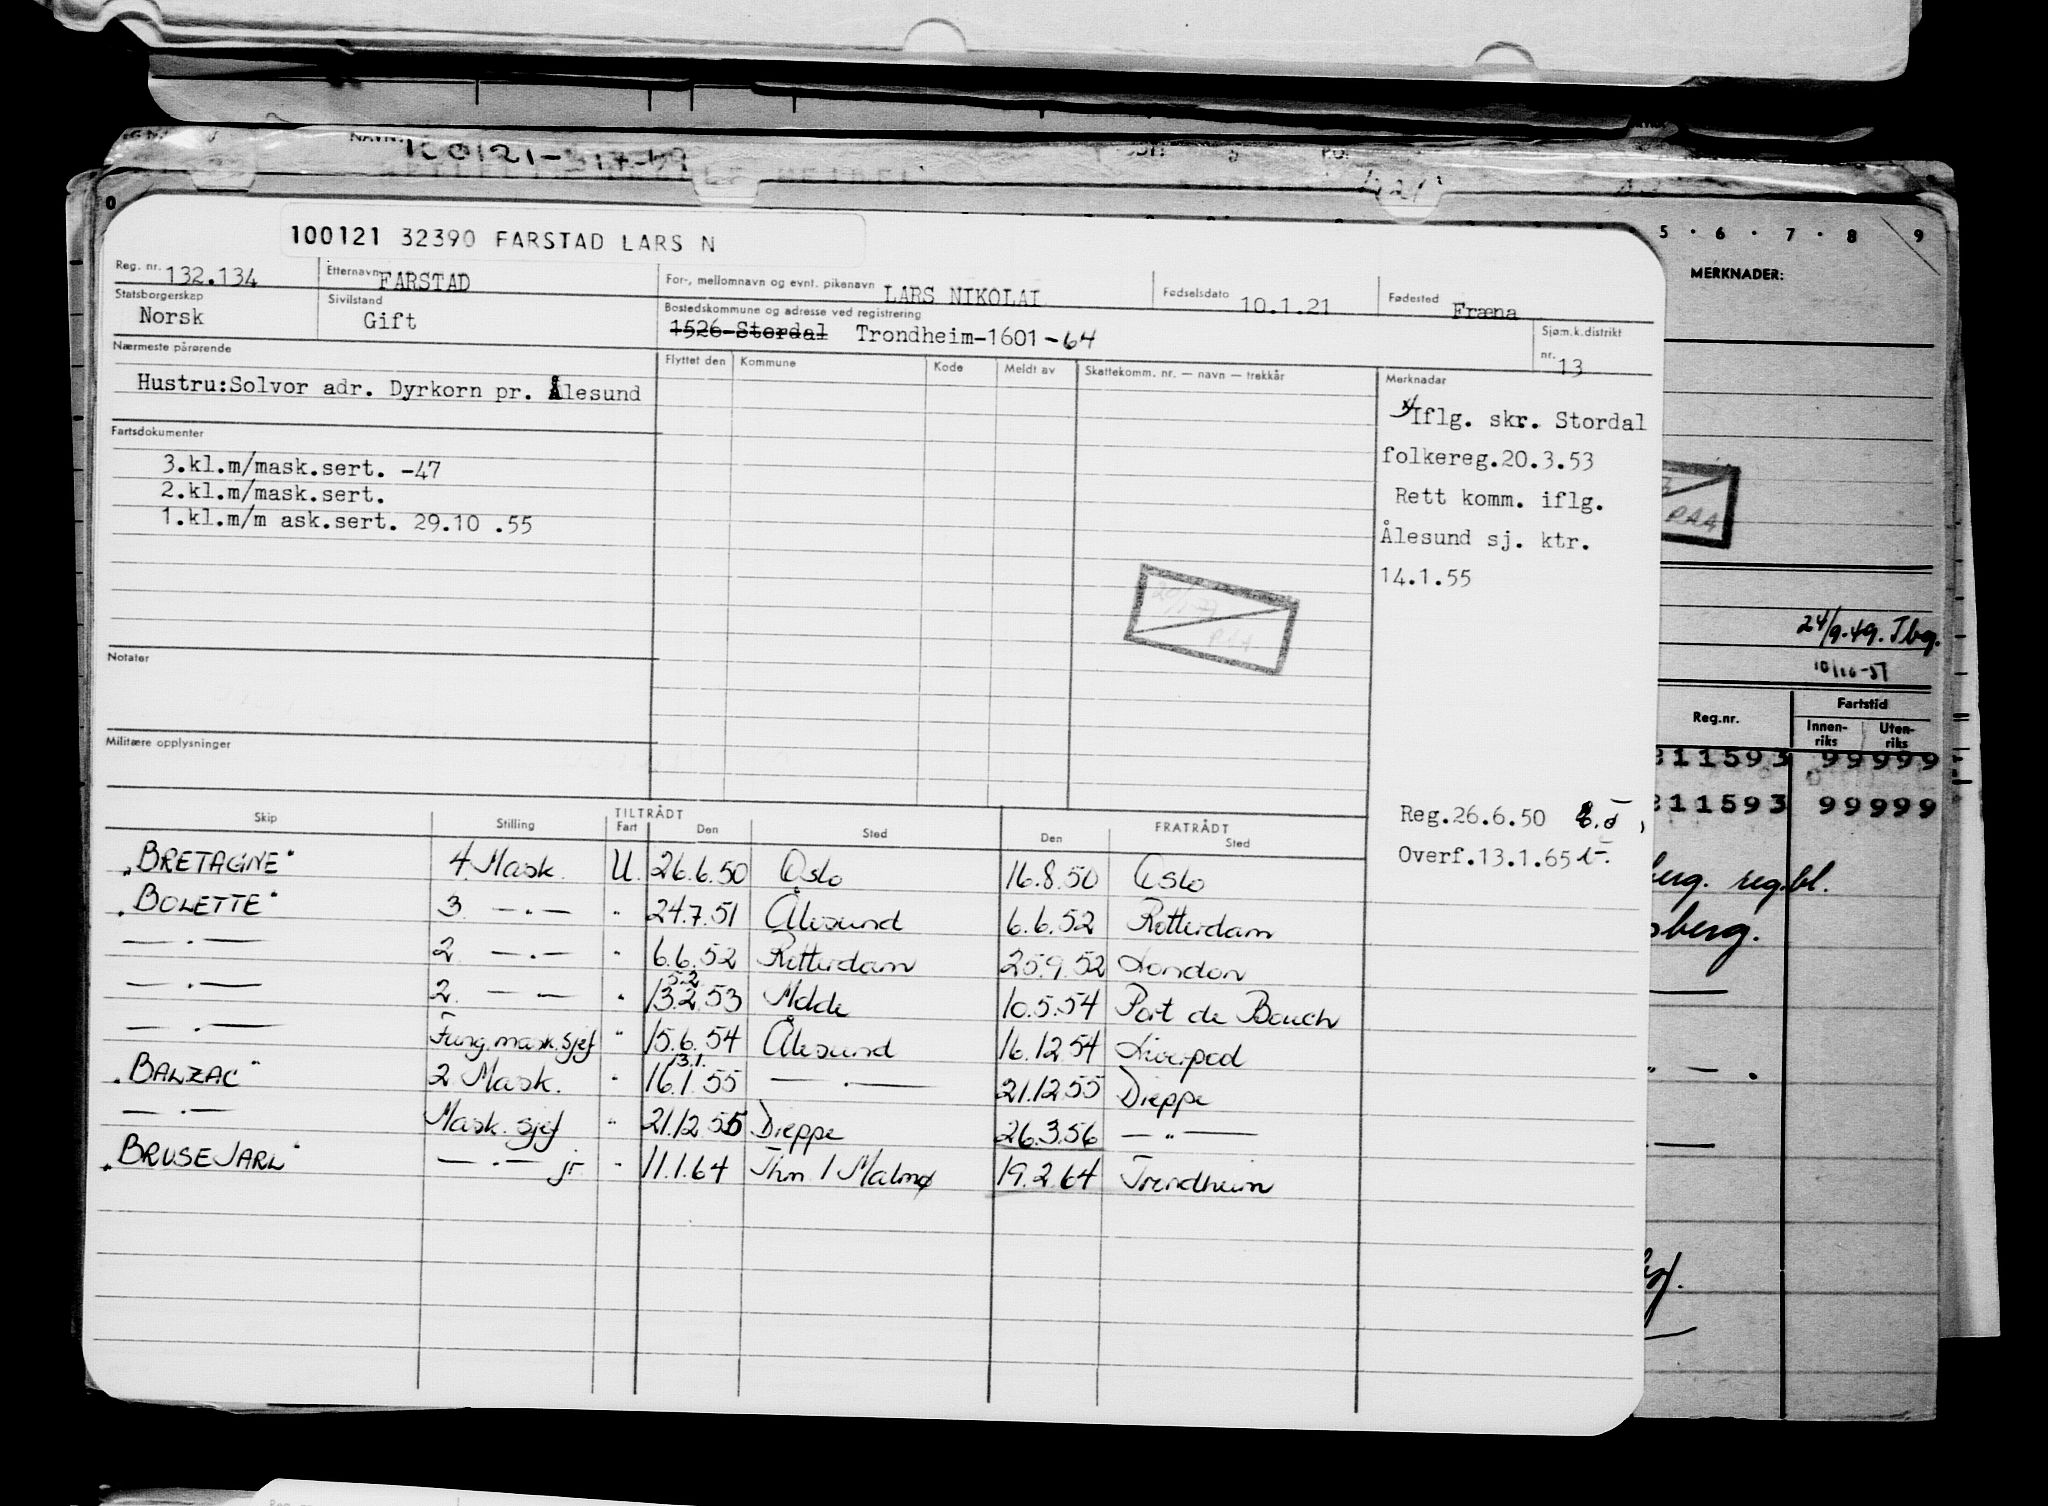 100121 32390 FARSTAD LARS N
Reg. nr. 132.134 Etternavn FARSTAD For-, mellomnavn og evnt. pikenavn LARS NIKOLAI Fødselsdato 10.1.21 Fødested Fræna
Statsborgerskap Norsk Sivilstand Gift Bostedskommune og adresse ved registrering 1526-Stordal Trondheim-1601-64 Sjøm.k.distrikt nr. 13
Nærmeste pårørende Flyttet den Kommune Kode Meldt av Skattekomm. nr. — navn — trekkår Merknadar
Hustru:Solvor adr. Dyrkorn pr. Ålesund
Iflg. skr. Stordal
folkereg.20.3.53
Rett komm. iflg.
Ålesund sj. ktr.
14.1.55
Fartsdokumenter
3.kl.m/mask.sert. -47
2.kl.m/mask.sert.
1.kl.m/m ask.sert. 29.10 .55
PAA
Notater
Militære opplysninger
Reg.26.6.50
Overf.13.1.65
TILTRÅDT FRATRÅDT
Skip Stilling Fart Den Sted Den Sted
"BRETAGNE" 4. Mask. U. 26.6.50 Oslo 16.8.50 Oslo
"BOLETTE" 3 — . — " 24.7.51 Ålesund 6.6.52 Rotterdam
— . — 2 — . — " 6.6.52 Rotterdam 25.9.52 London
— . — 2. — — " 5.2. 13.2.53 Molde 10.5.54 Port de Bouch
— . — Fung. mask.sjef " 15.6.54 Ålesund 16.12.54 Liverpool
"BALZAC" 2 Mask. " 13.1. 16.1.55 — . — 21.12.55 Dieppe
— . — Mask. sjef " 21.12.55 Dieppe 26.3.56 — " —
"BRUSE JARL" — . — jr. " 11.1.64 Thm / Malmø 19.2.64 Trondheim
5 · 6 · 7 · 8 9
MERKNADER:
PAA
24/9.49. Tbg.
10/10-51
Reg.nr. Fartstid
Innen-riks Uten-riks
211593 99999
211593 99999
berg. reg.bl.
sberg.
NAVN: